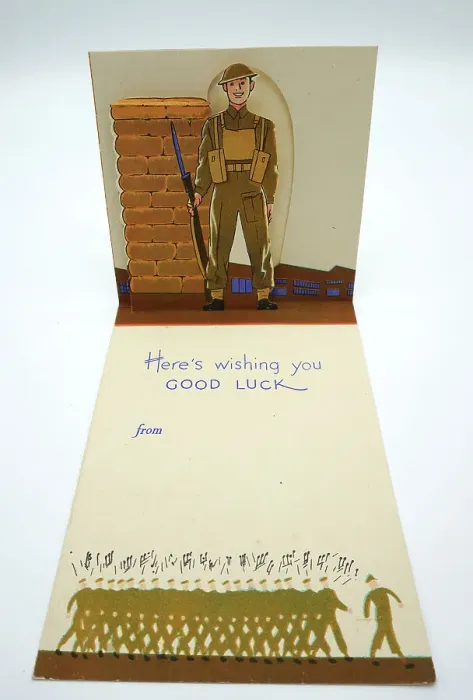 Here's wishing you
GOOD LUCK
from